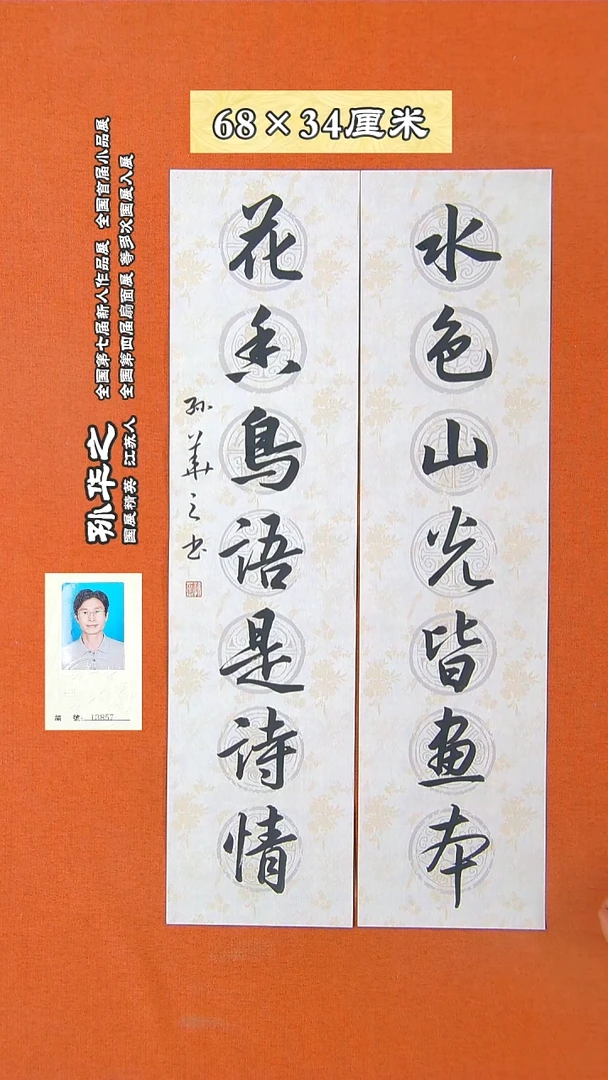 68×34厘米
水色山光皆画本
花香鸟语是诗情
孙华之书
孙华之
全国第七届新人作品展 全国首届小品展
全国第四届扇面展 等多次国展入展
国展精英 江苏人
编 號: 13857